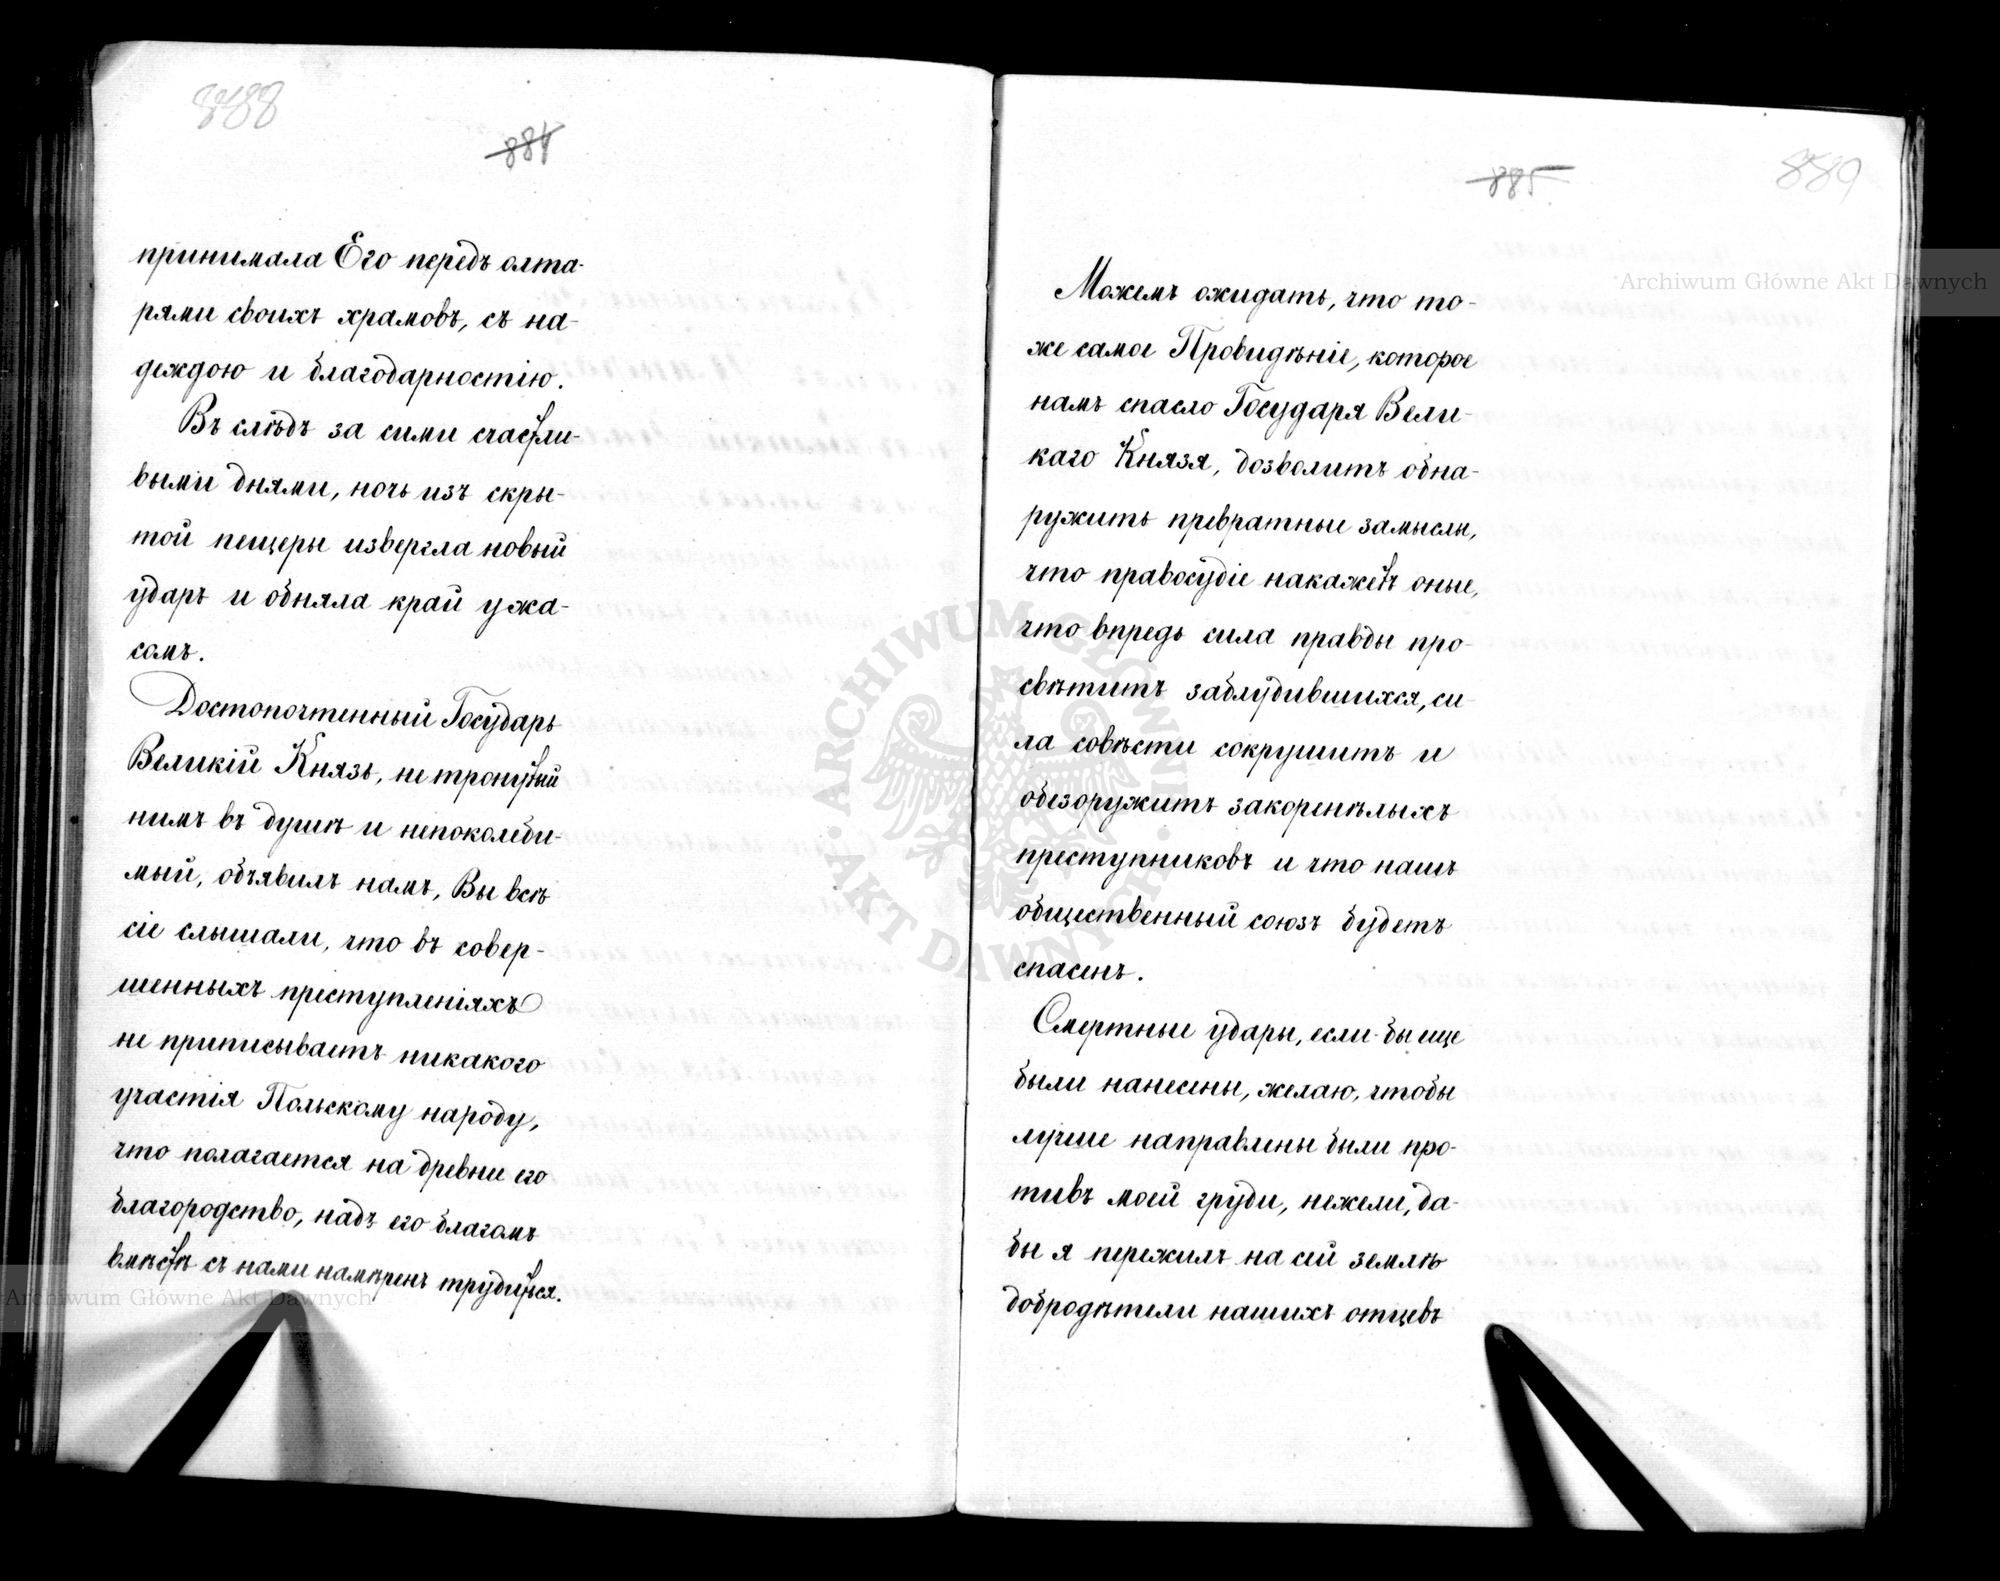 888
884
принимала Его передъ олта-
рями своихъ храмовъ, съ на-
деждою и благодарностію.
Въ слѣдъ за сими счастли-
выми днями, ночь изъ скры-
той пещеры извергла новый
ударъ и обняла край ужа-
сомъ.
Достопочтенный Государь
Великій Князь, не тронутый
нимъ въ душѣ и непоколеби-
мый, объявилъ намъ, Вы всѣ
сіе слышали, что въ совер-
шенныхъ преступленіяхъ
не приписываетъ никакого
участія Польскому народу,
что полагается на древне его
благородство, надъ его благомъ
вмѣстѣ съ нами намѣренъ трудиться.
885
889
Можемъ ожидать, что то-
же самое Провидѣніе, которое
намъ спасло Государя Вели-
каго Князя, дозволитъ обна-
ружить превратные замыслы,
что правосудіе накажетъ оные,
что впредь сила правды про-
свѣтитъ заблудившихся, си-
ла совѣсти сокрушитъ и
обезоружитъ закоренѣлыхъ
преступниковъ и что нашъ
общественный союзъ будетъ
спасенъ.
Смертные удары, если-бы еще
были нанесены, желаю, чтобы
лучше направлены были про-
тивъ моей груди, нежели, да-
бы я пережилъ на сей землѣ
добродѣтели нашихъ отцевъ
Archiwum Główne Akt Dawnych
Archiwum Główne Akt Dawnych
ARCHIWUM GŁÓWNE AKT DAWNYCH